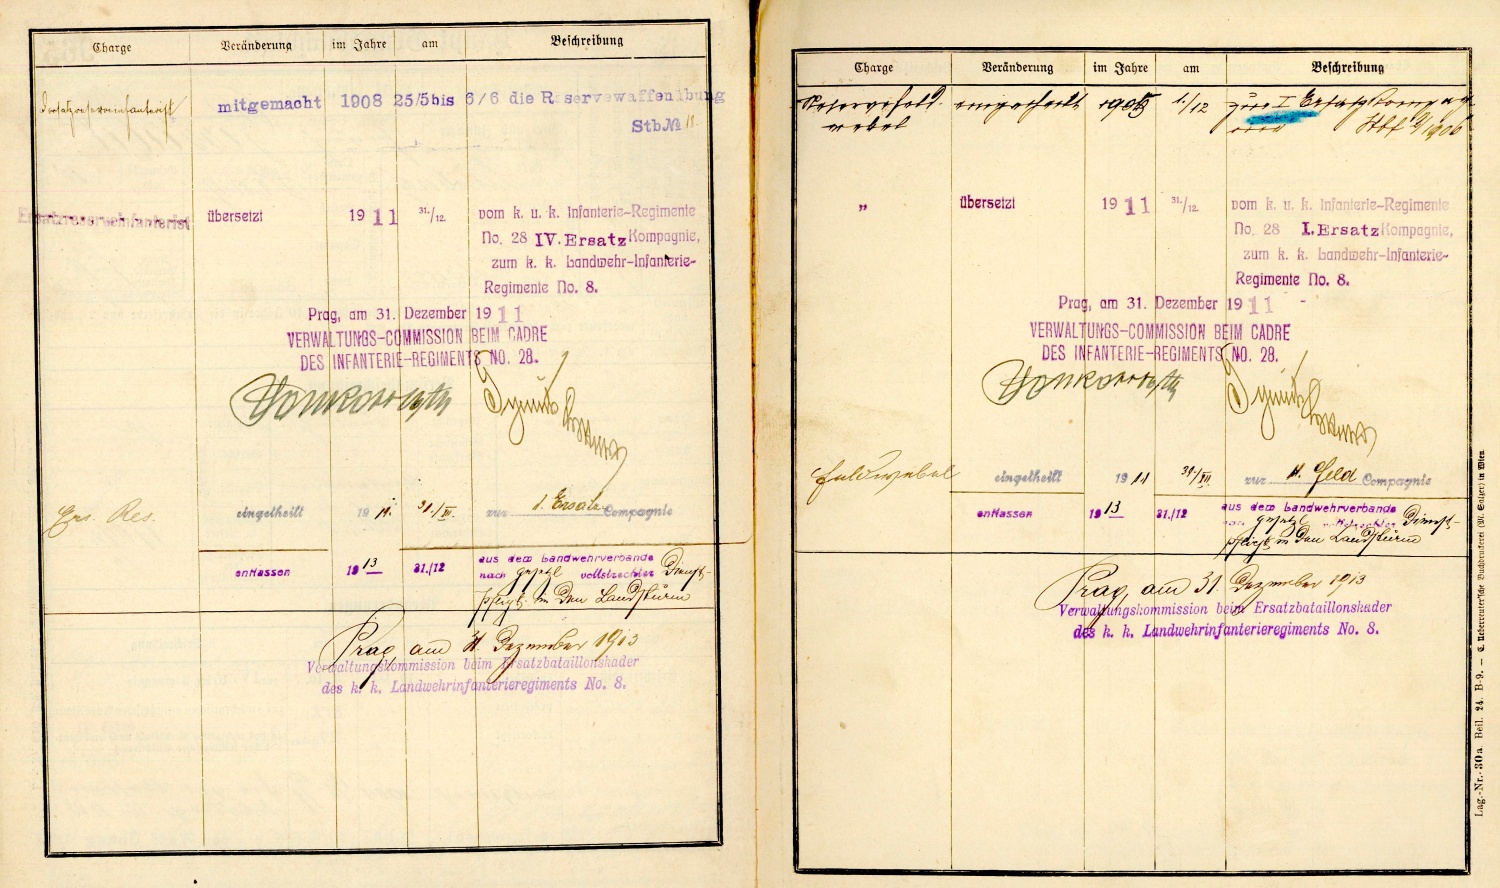 Charge Veränderung im Jahre am Beschreibung
Ersatzreserveinfanterist mitgemacht 1908 25/5 bis 6/6 die Reservewaffenübung
Stb.№
Ersatzreserveinfanterist übersetzt 1911 31./12. vom k. u. k. Infanterie-Regimente
No. 28 IV. Ersatz Kompagnie,
zum k. k. Landwehr-Infanterie-
Regimente No. 8.
Prag, am 31. Dezember 1911
VERWALTUNGS-COMMISSION BEIM CADRE
DES INFANTERIE-REGIMENTS NO. 28.
Ers. Res. eingetheilt 1911. 31./XII. zur 1. Ersatz Compagnie
entlassen 1913 31./12 aus dem Landwehrverbande
nach gesetzl vollstreckter Dienst-
pflicht in den Landsturm
Prag am 31. Dezember 1913
Verwaltungskommission beim Ersatzbataillonskader
des k. k. Landwehrinfanterieregiments No. 8.
Charge Veränderung im Jahre am Beschreibung
Reservefeld- eingetheilt 1905 1./12 zur I Ersatzkompag
webel
„ übersetzt 1911 31./12. vom k. u. k. Infanterie-Regimente
No. 28 I. Ersatz Kompagnie,
zum k. k. Landwehr-Infanterie-
Regimente No. 8.
Prag, am 31. Dezember 1911
VERWALTUNGS-COMMISSION BEIM CADRE
DES INFANTERIE-REGIMENTS NO. 28.
Feldwebel eingetheilt 1911 31./XII. zur 11. Feld Compagnie
entlassen 1913 31./12 aus dem Landwehrverbande
nach gesetzl vollstreckter Dienst-
pflicht in den Landsturm
Prag, am 31. Dezember 1913
Verwaltungskommission beim Ersatzbataillonskader
des k. k. Landwehrinfanterieregiments No. 8.
Lag.-Nr. 30a. Beil. 24. B-9. — C. Ueberreuter'sche Buchdruckerei (M. Salzer) in Wien